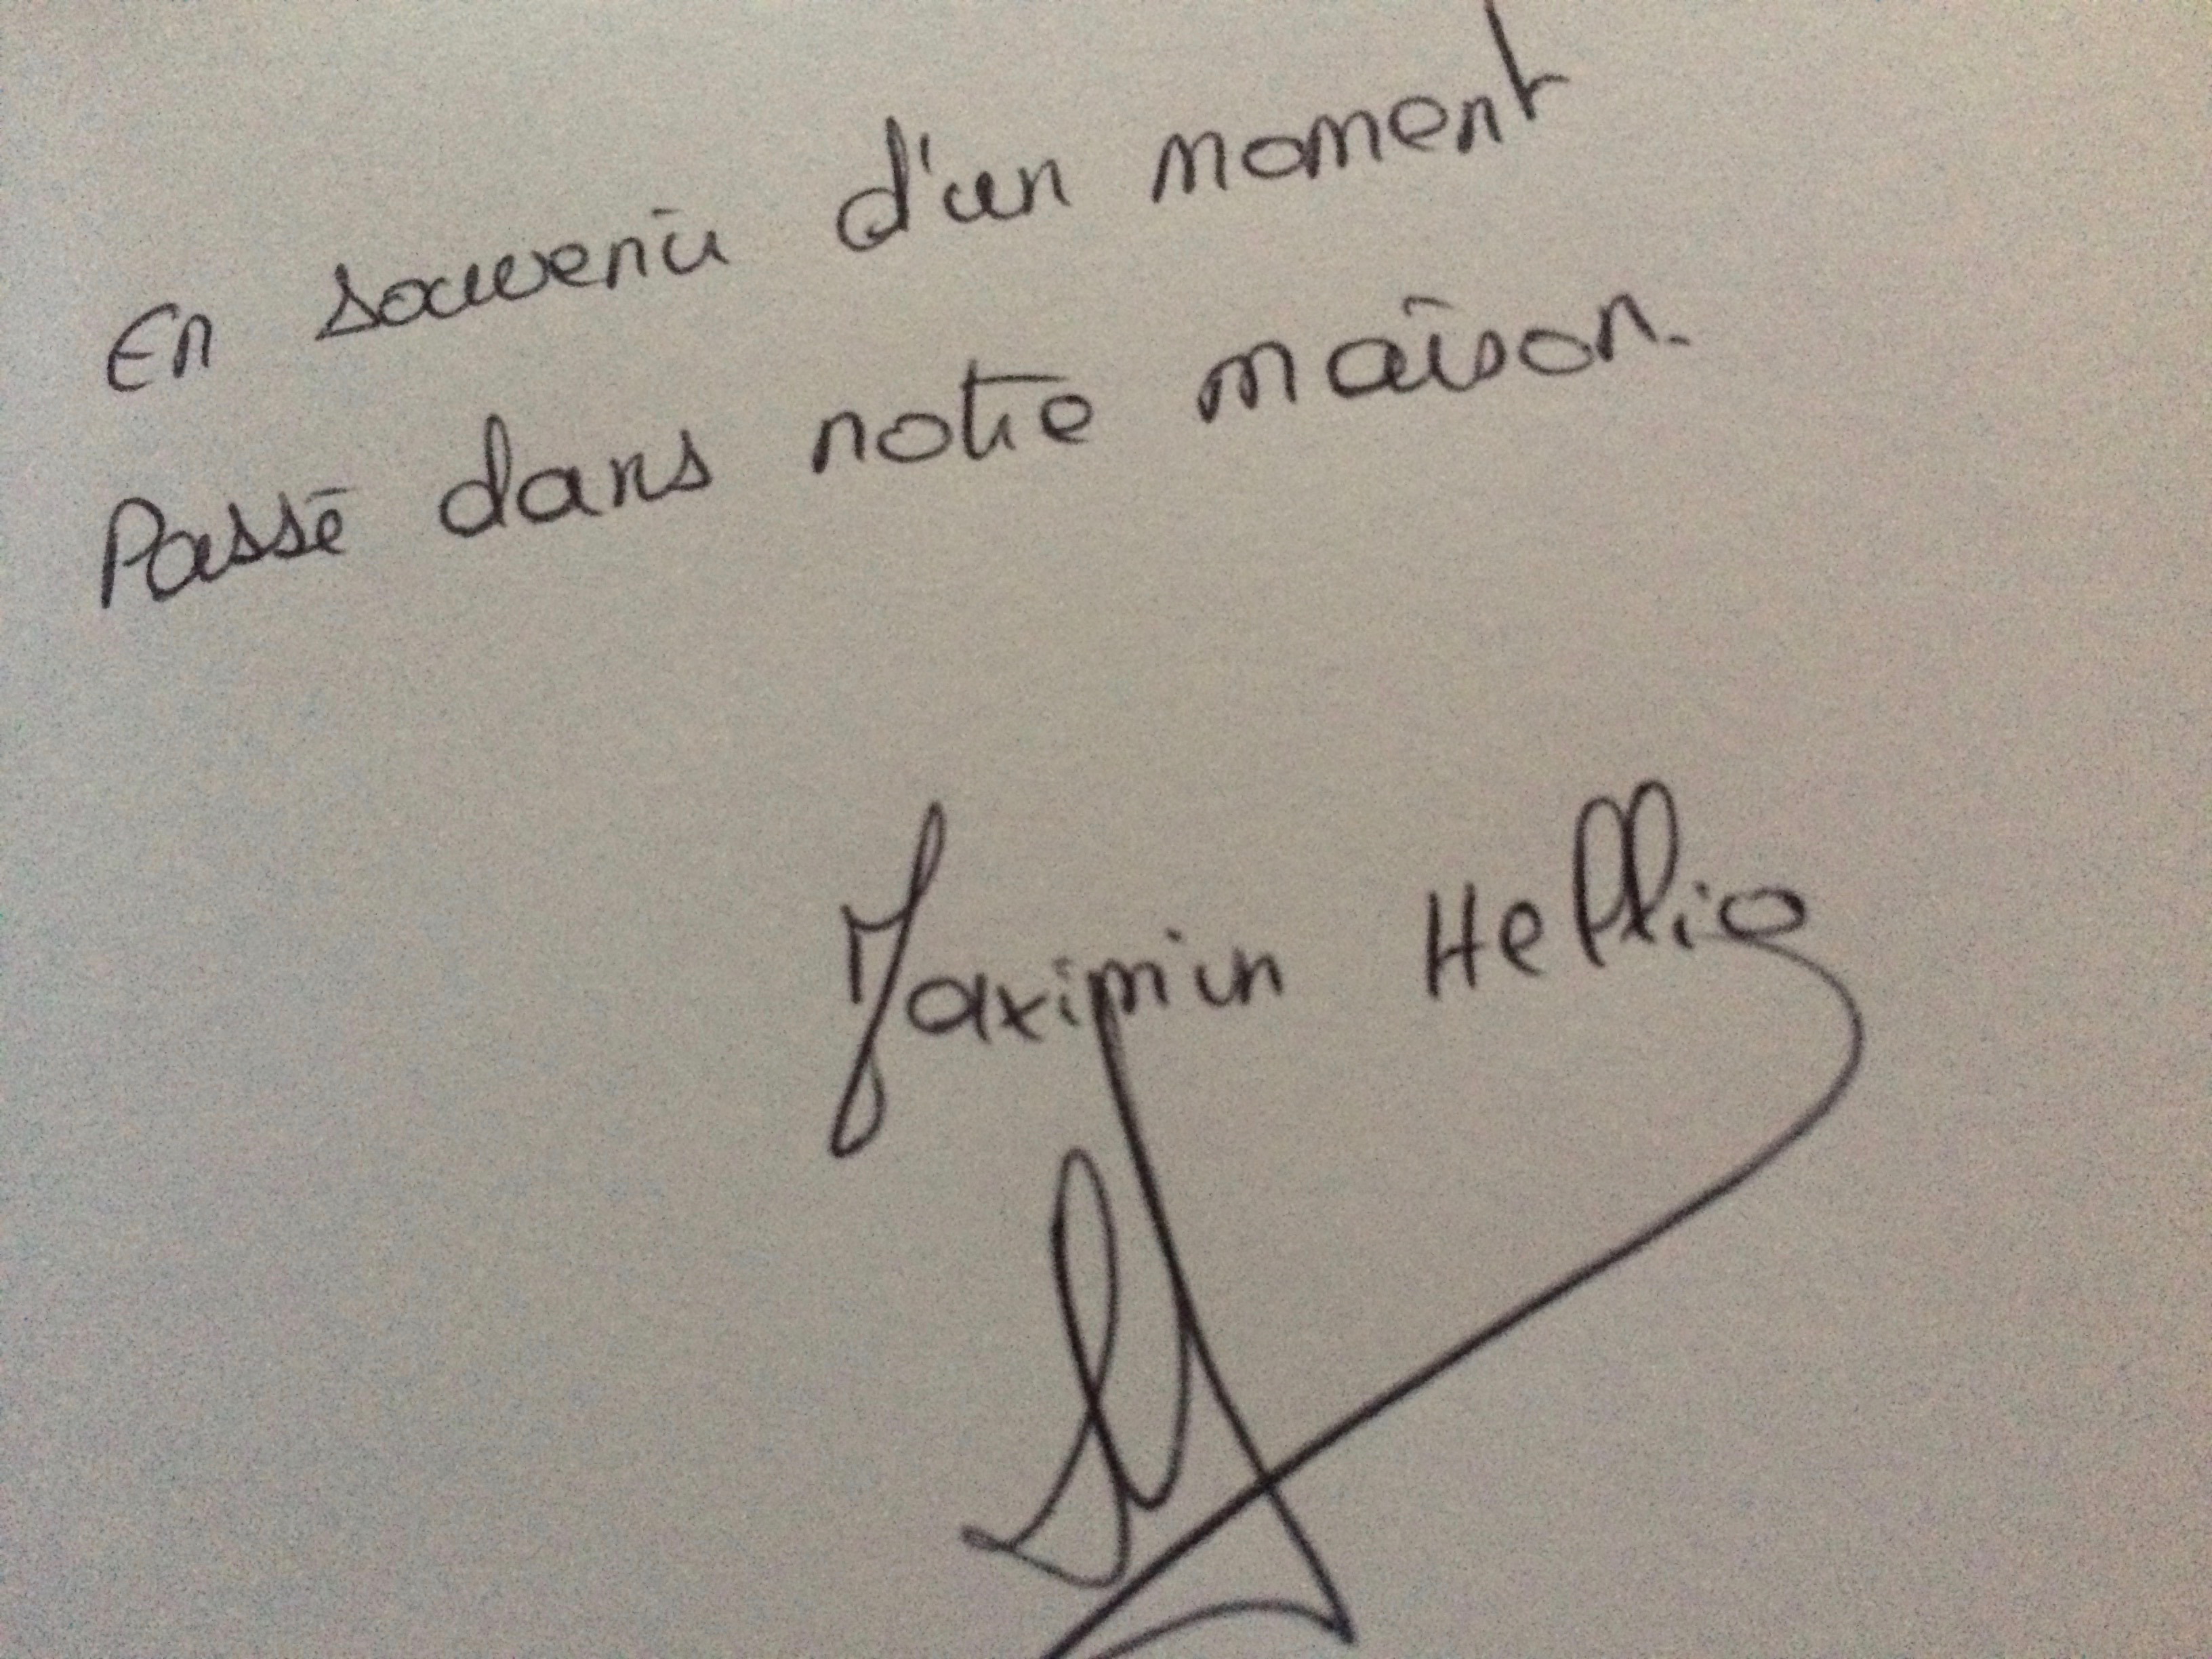 En souvenir d'un moment
Passé dans notre maison.
Maximin Hellio